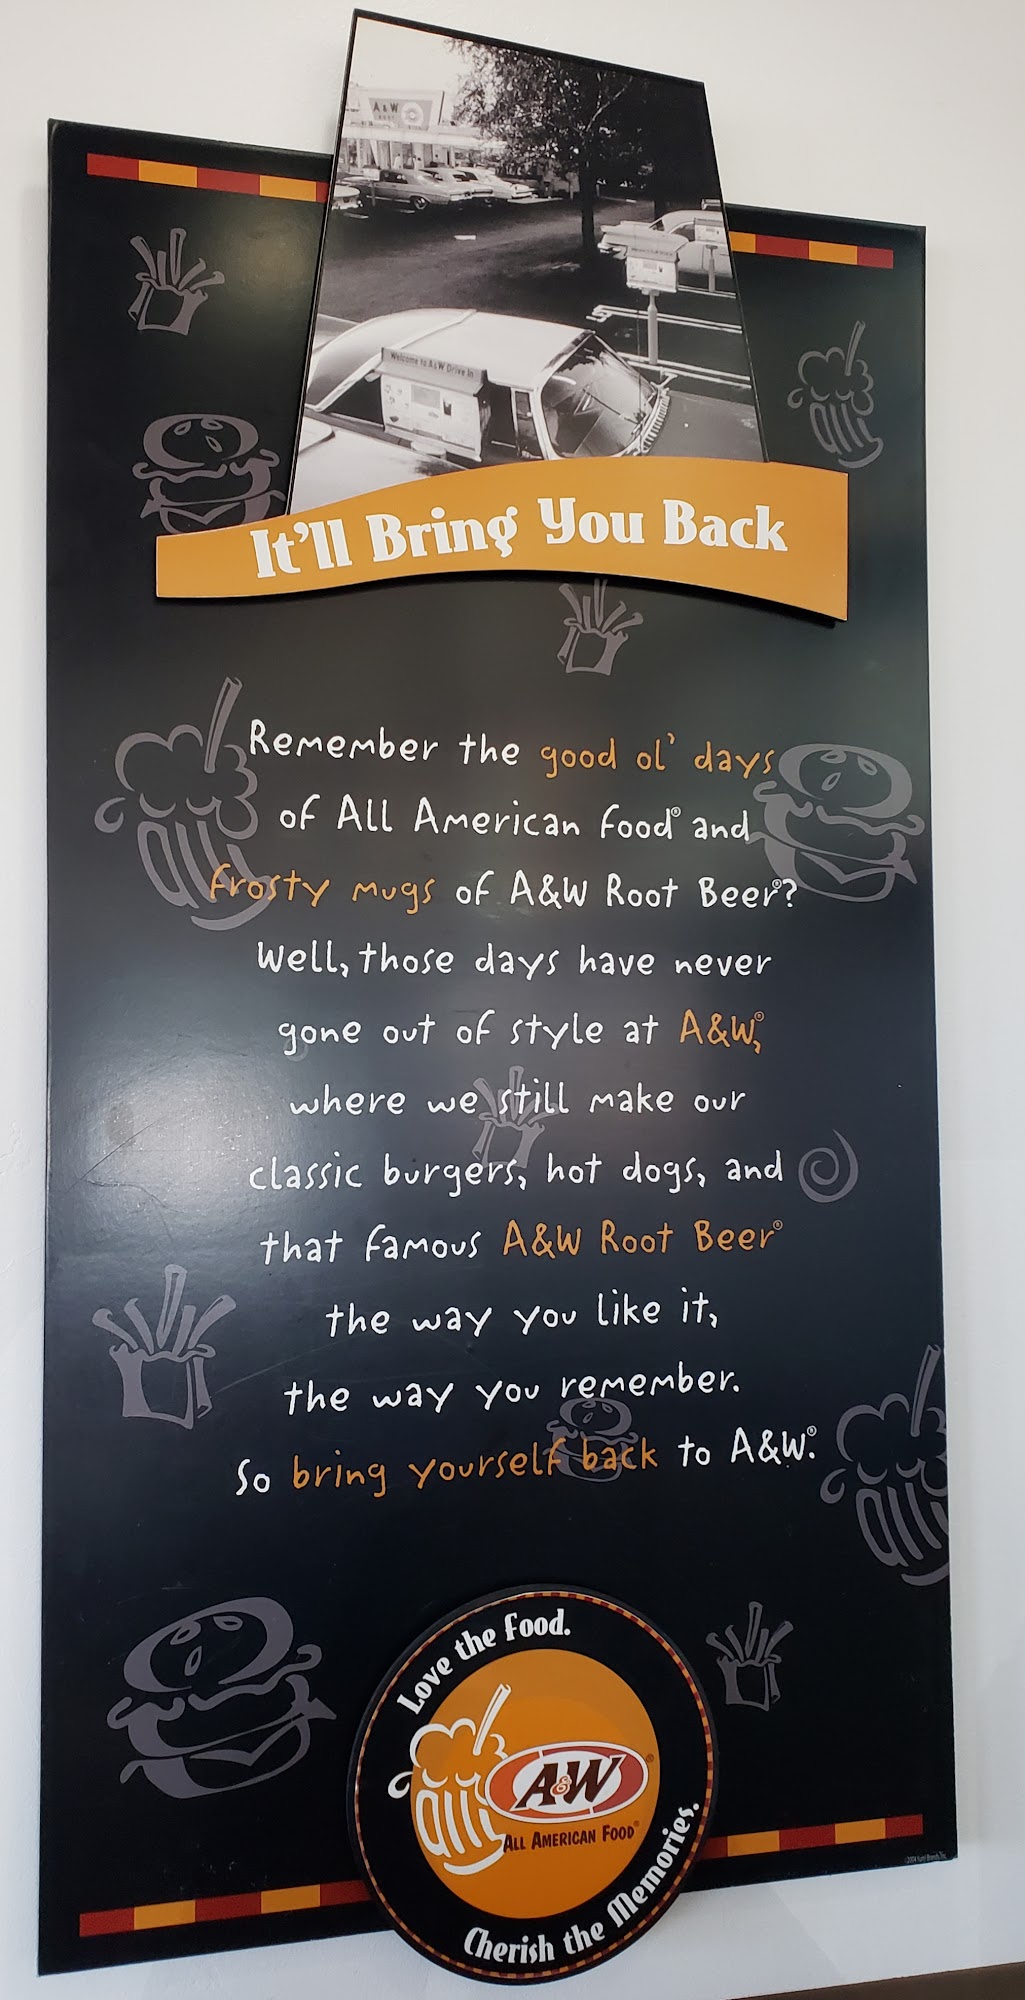 A & W
Welcome to A&W Drive In
It'll Bring You Back
Remember the good ol' days
of All American Food® and
frosty mugs of A&W Root Beer®?
Well, those days have never
gone out of style at A&W®,
where we still make our
classic burgers, hot dogs, and
that famous A&W Root Beer®
the way you like it,
the way you remember.
So bring yourself back to A&W®.
Love the Food.
A&W®
All American Food®
Cherish the Memories.
©2004 Yum! Brands, Inc.